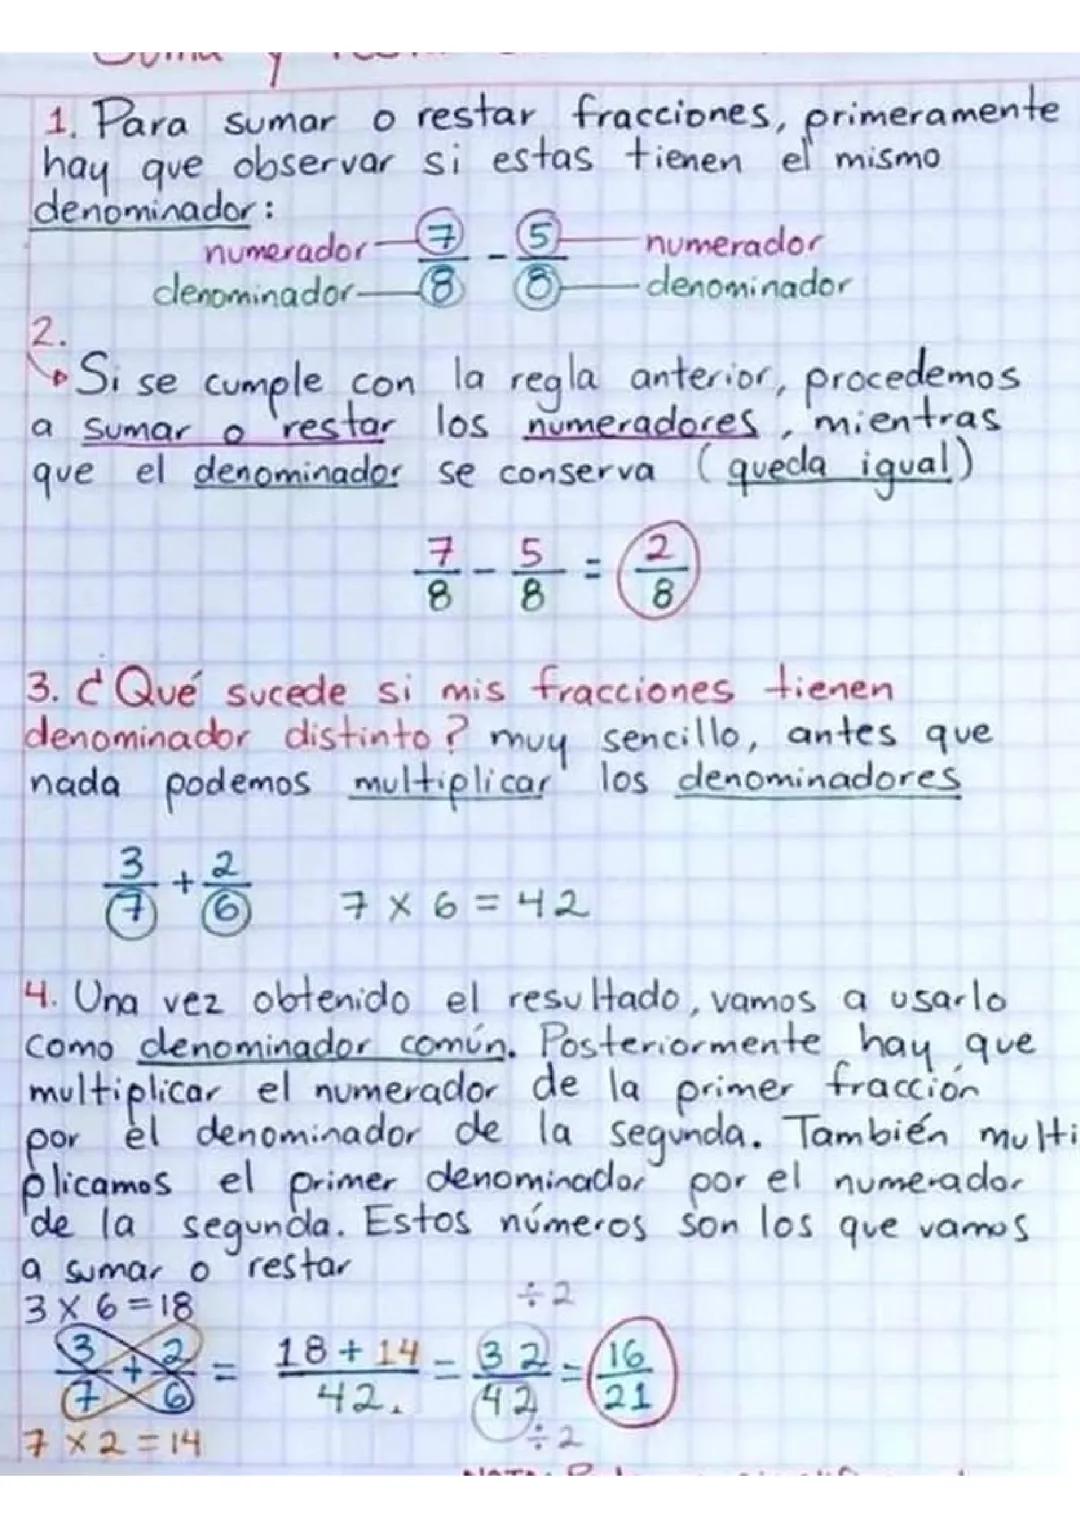 Suma y
1. Para sumar o restar fracciones, primeramente
hay que observar si estas tienen el mismo
denominador:
numerador 7/8 - 5/8 numerador
denominador denominador
2.
Si se cumple con la regla anterior, procedemos
a sumar o restar los numeradores, mientras
que el denominador se conserva (queda igual)
7/8 - 5/8 = 2/8
3. ¿Qué sucede si mis fracciones tienen
denominador distinto? muy sencillo, antes que
nada podemos multiplicar los denominadores
3/7 + 2/6 7 x 6 = 42
4. Una vez obtenido el resultado, vamos a usarlo
como denominador común. Posteriormente hay que
multiplicar el numerador de la primer fracción
por el denominador de la segunda. También multi
plicamos el primer denominador por el numerador
de la segunda. Estos números son los que vamos
a sumar o restar
3 x 6 = 18 ÷2
3/7 + 2/6 = 18 + 14/42. = 32/42 = 16/21
7 x 2 = 14 ÷2